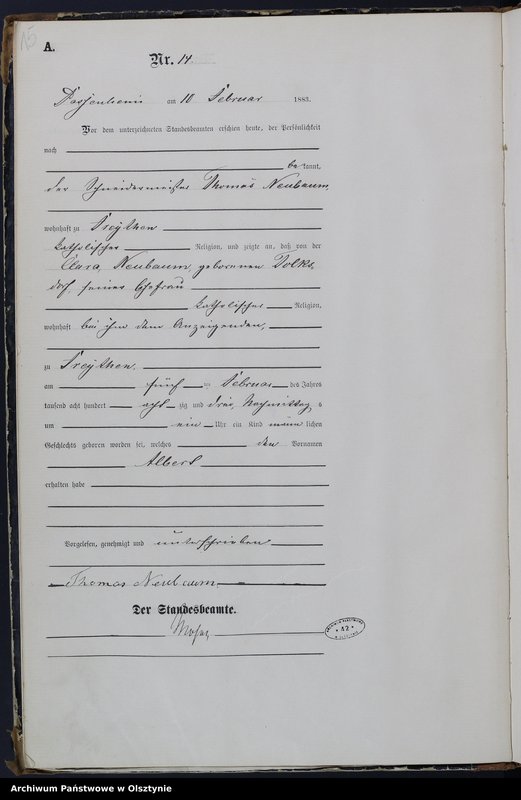 15
A.
Nr. 14
Passenheim am 10 Februar 1883.
Vor dem unterzeichneten Standesbeamten erschien heute, der Persönlichkeit
nach
be kannt,
der Schneidermeister Thomas Neubaum,
wohnhaft zu
katholischer Religion, und zeigte an, daß von der
Clara Neubaum, geborenen Volks¬
dorf, seiner Ehefrau
katholischer Religion,
wohnhaft bei ihm dem Anzeigenden,
zu
am fünf ten Februar des Jahres
tausend acht hundert acht zig und drei, Nachmittag s
um ein Uhr ein Kind männ lichen
Geschlechts geboren worden sei, welches den Vornamen
Albert
erhalten habe
Vorgelesen, genehmigt und unterschrieben
Thomas Neubaum
Der Standesbeamte.
42
Archiwum Państwowe w Olsztynie